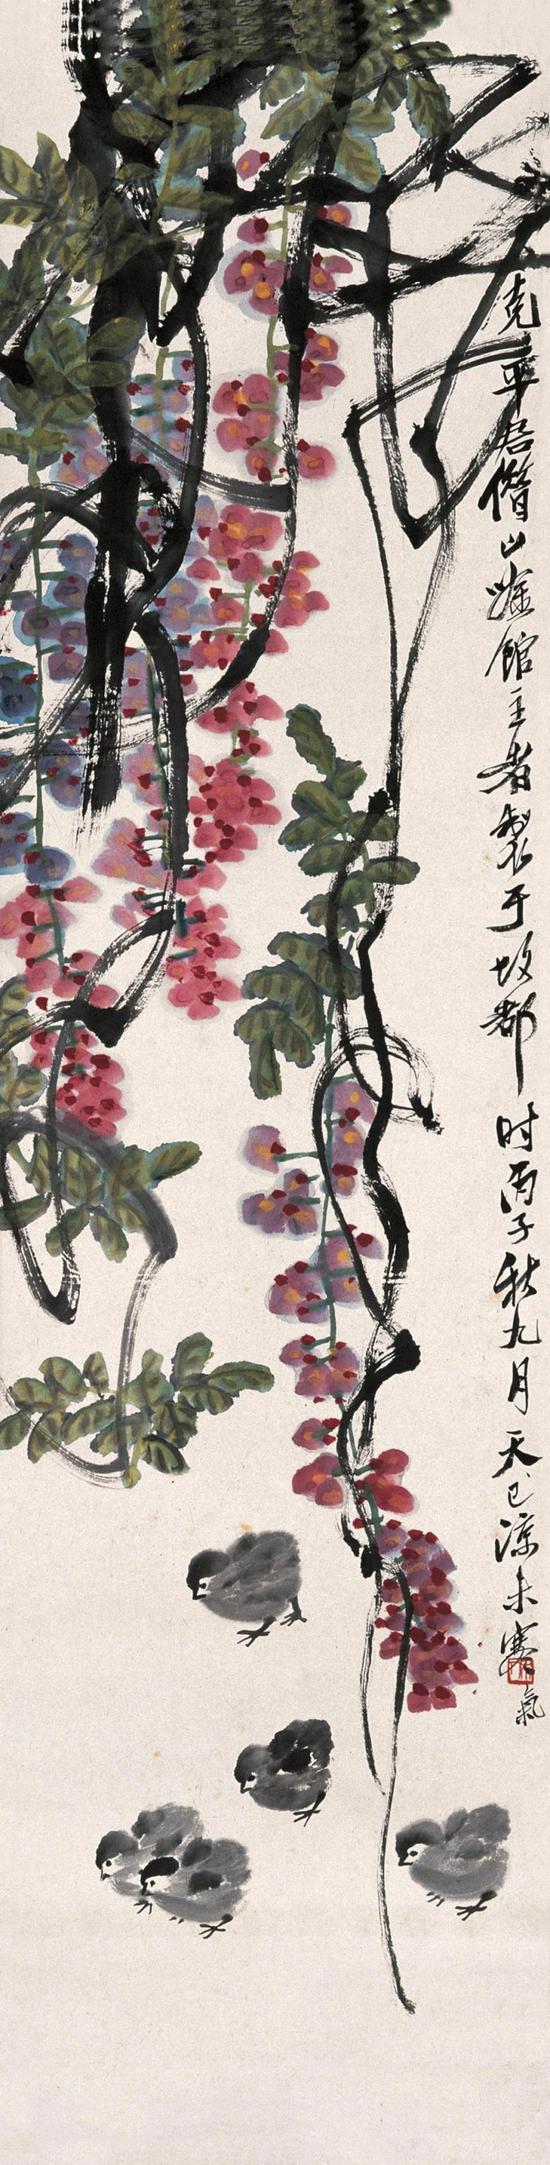 克平居借山馆主者製于故都时丙子秋九月天已凉未寒
氣